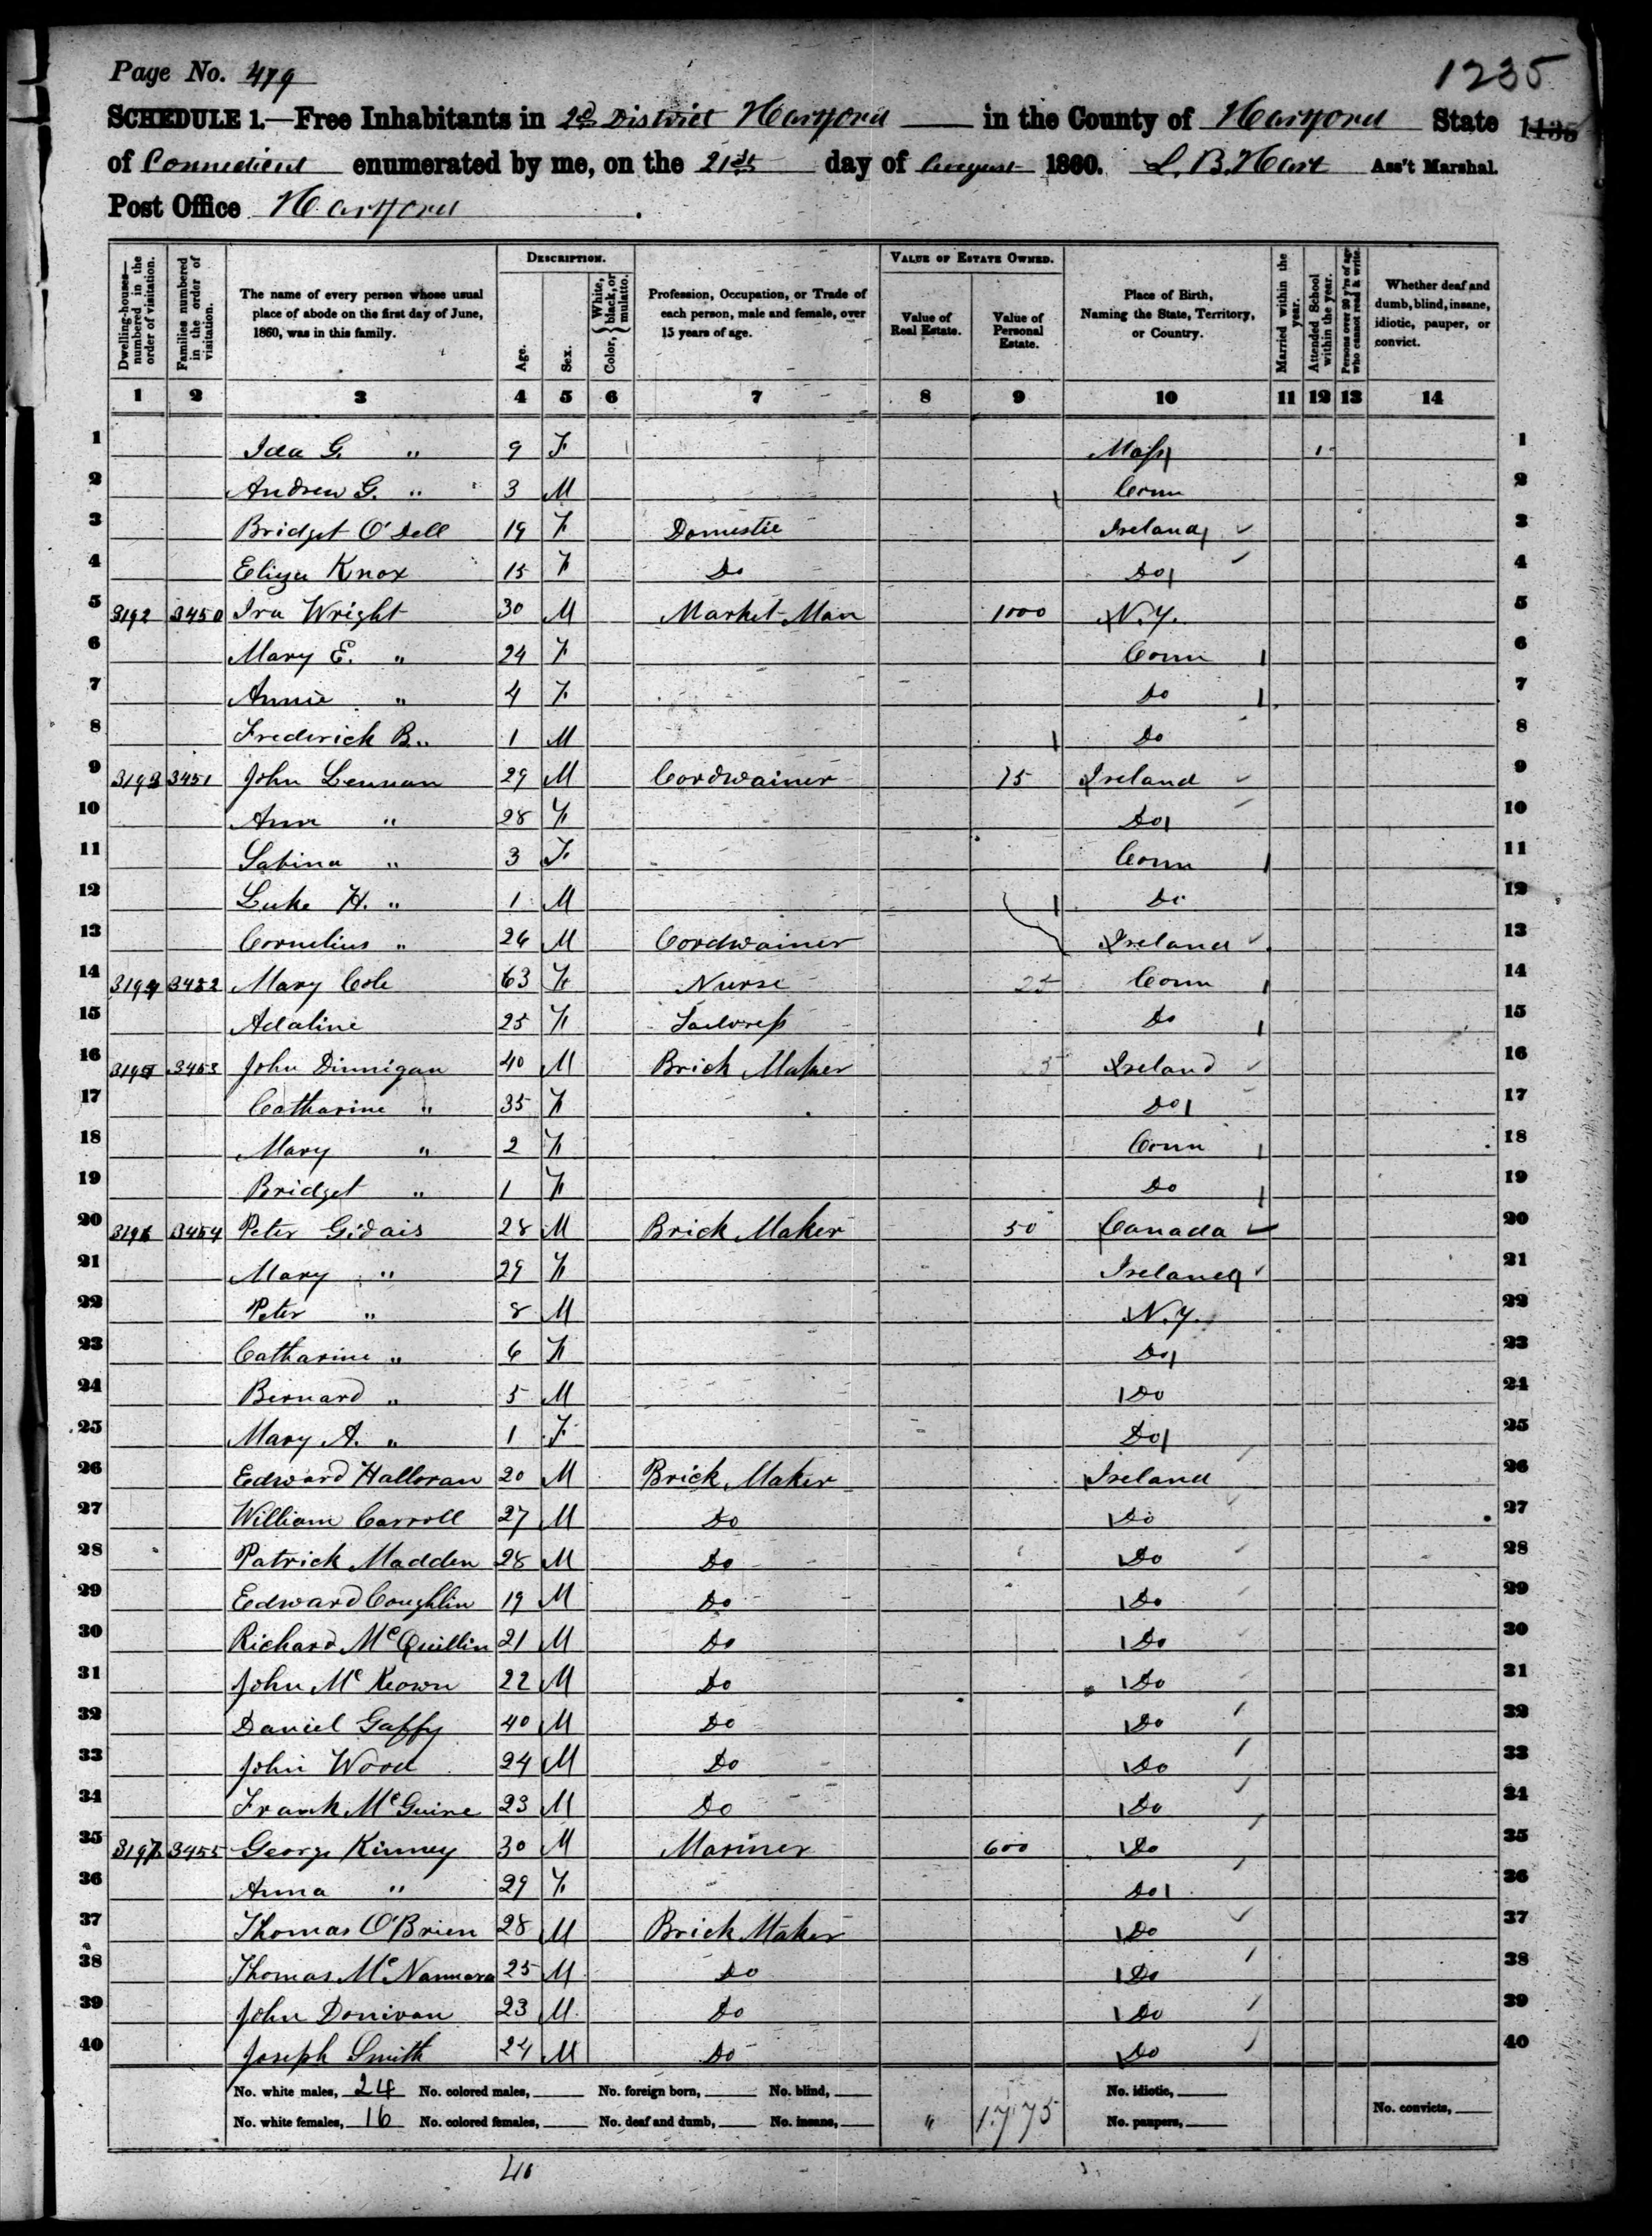 Page No. 479
1235
SCHEDULE 1.—Free Inhabitants in 2d District Hartford in the County of Hartford State 1135
of Connecticut enumerated by me, on the 21st day of August 1860. L. B. Hart Ass't Marshal.
Post Office Hartford.
Dwelling-houses—numbered in the order of visitation.
Families numbered in the order of visitation.
The name of every person whose usual place of abode on the first day of June, 1860, was in this family.
DESCRIPTION.
Age.
Sex.
Color, { White, black, or mulatto.
Profession, Occupation, or Trade of each person, male and female, over 15 years of age.
VALUE OF ESTATE OWNED.
Value of Real Estate.
Value of Personal Estate.
Place of Birth, Naming the State, Territory, or Country.
Married within the year.
Attended School within the year.
Persons over 20 y'rs of age who cannot read & write.
Whether deaf and dumb, blind, insane, idiotic, pauper, or convict.
1 2 3 4 5 6 7 8 9 10 11 12 13 14
1 Ida G. " 9 F Mass 1 1
2 Andrew G. " 3 M Conn 2
3 Bridget O'Dell 19 F Domestic Ireland 3
4 Eliza Knox 15 F Do Do 4
5 3192 3450 Ira Wright 30 M Market Man 1000 N.Y. 5
6 Mary E. " 24 F Conn 6
7 Annie " 4 F Do 7
8 Frederick B. " 1 M Do 8
9 3193 3451 John Lennan 29 M Cordwainer 75 Ireland 9
10 Ann " 28 F Do 10
11 Sabina " 3 F Conn 11
12 Luke H. " 1 M Do 12
13 Cornelius " 26 M Cordwainer Ireland 13
14 3194 3452 Mary Cole 63 F Nurse 25 Conn 14
15 Adaline 25 F Tailoress Do 15
16 3195 3453 John Dinnigan 40 M Brick Maker 25 Ireland 16
17 Catharine " 35 F Do 17
18 Mary " 2 F Conn 18
19 Bridget " 1 F Do 19
20 3196 3454 Peter Gidais 28 M Brick Maker 50 Canada 20
21 Mary " 29 F Ireland 21
22 Peter " 8 M N.Y. 22
23 Catharine " 6 F Do 23
24 Bernard " 5 M Do 24
25 Mary A. " 1 F Do 25
26 Edward Halloran 20 M Brick Maker Ireland 26
27 William Carroll 27 M Do Do 27
28 Patrick Madden 28 M Do Do 28
29 Edward Coughlin 19 M Do Do 29
30 Richard McQuillin 21 M Do Do 30
31 John McKeown 22 M Do Do 31
32 Daniel Gaffy 40 M Do Do 32
33 John Wood 24 M Do Do 33
34 Frank McGuire 23 M Do Do 34
35 3197 3455 George Kinney 30 M Mariner 600 Do 35
36 Anna " 29 F Do 36
37 Thomas O'Brien 28 M Brick Maker Do 37
38 Thomas McNamara 25 M Do Do 38
39 John Donivan 23 M Do Do 39
40 Joseph Smith 24 M Do Do 40
No. white males, 24 No. colored males, No. foreign born, No. blind, No. idiotic,
No. white females, 16 No. colored females, No. deaf and dumb, No. insane, " 1775 No. paupers, No. convicts,
40